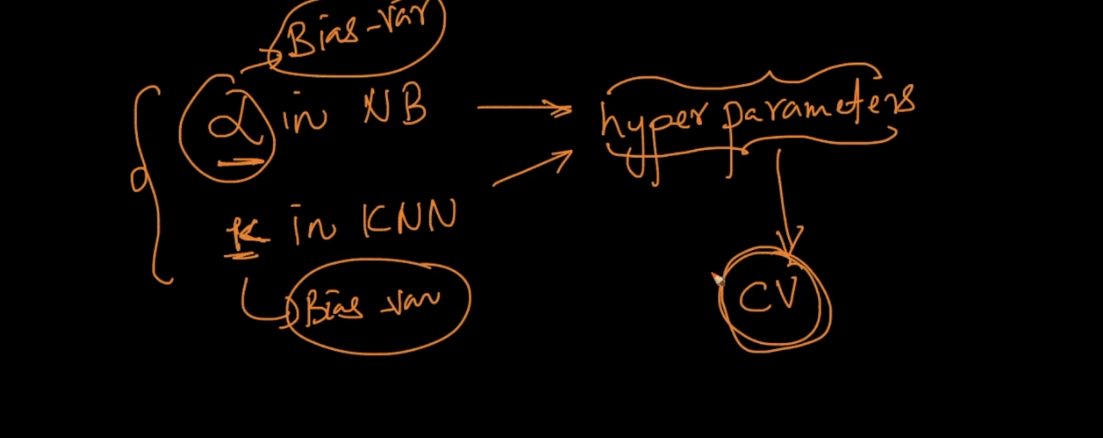 Bias-Var
α in NB
hyper parameters
K in KNN
Bias var
CV